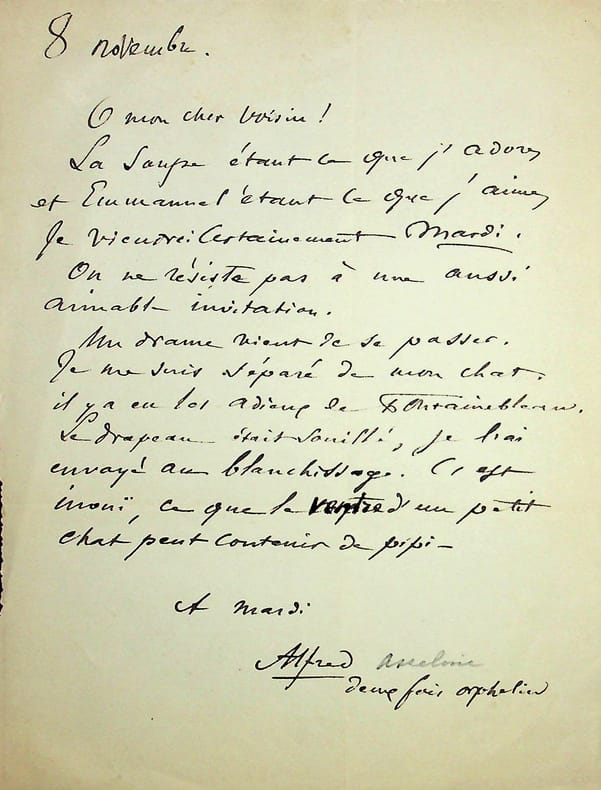 8 novembre.
O mon cher Voisin !
La Soupe étant ce que j'adore,
et Emmanuel étant ce que j'aime,
Je viendrai Certainement Mardi.
On ne résiste pas à une aussi
aimable invitation.
Un drame vient de se passer.
Je me suis séparé de mon chat.
il y a eu les adieux de Fontainebleau.
Le drapeau était souillé, je l'ai
envoyé au blanchissage. C'est
inouï, ce que le ventre d'un petit
chat peut contenir de pipi —
A mardi
Alfred Asseline
deux fois orphelin